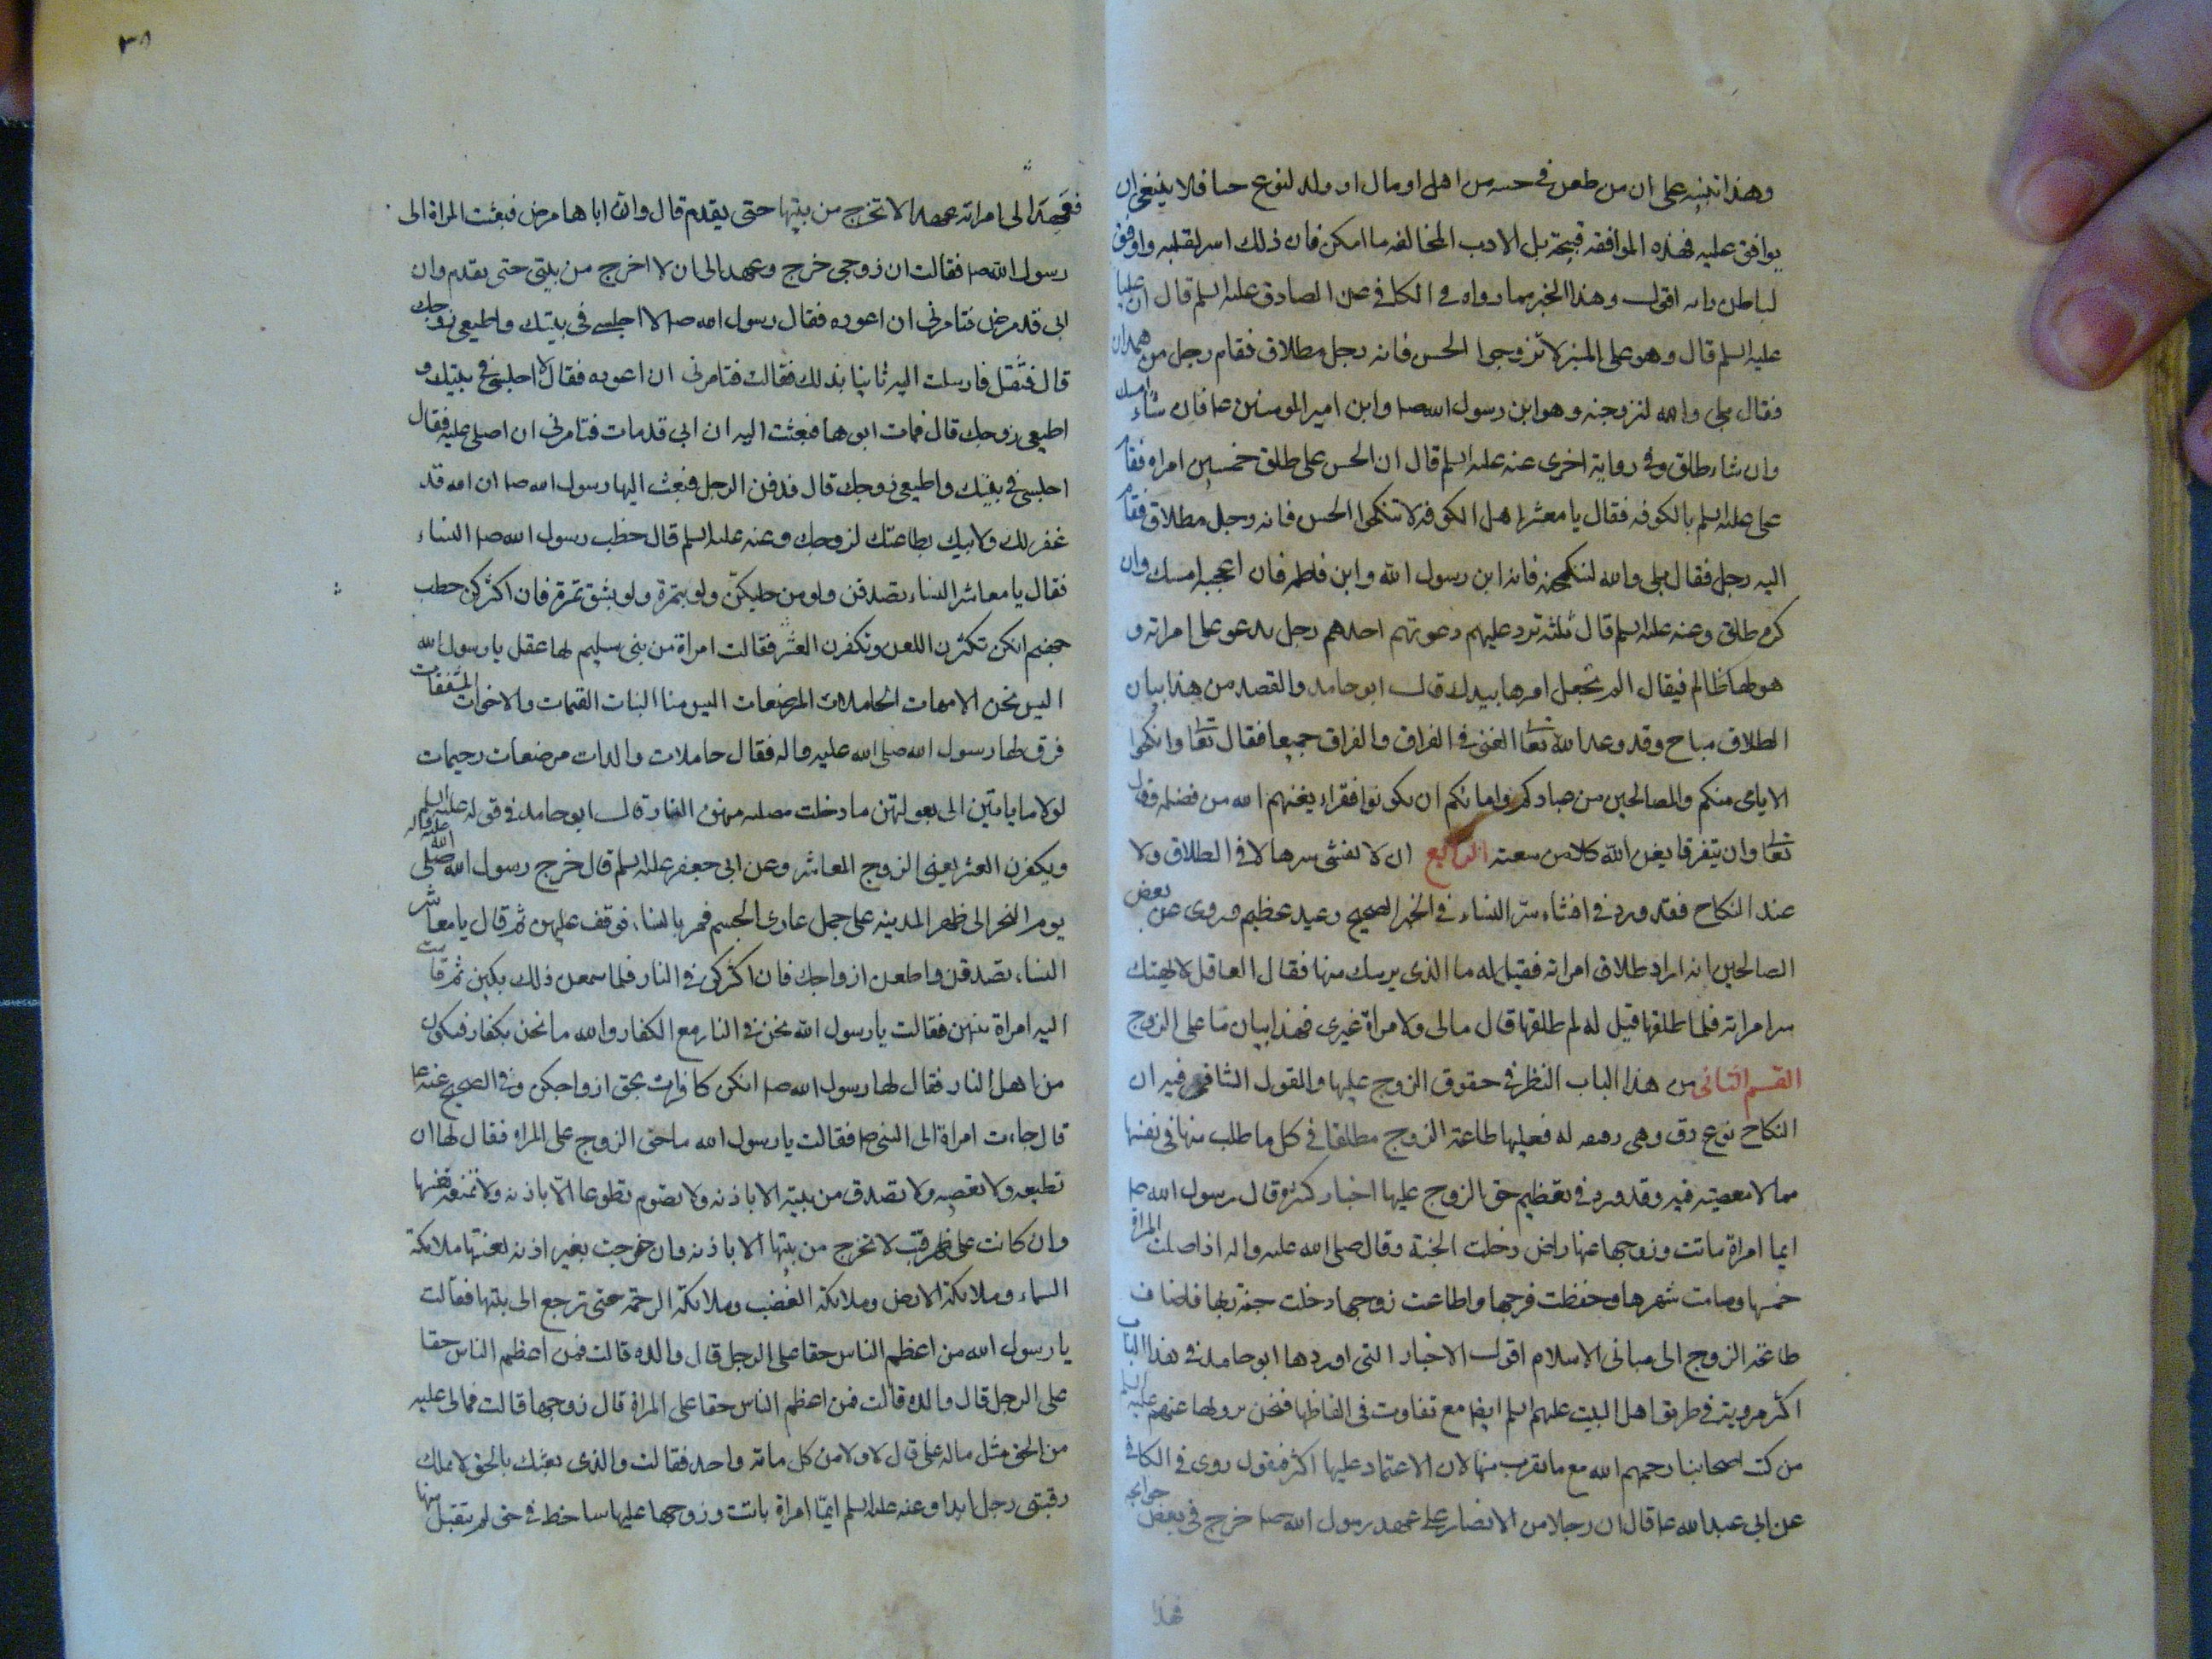 وهذا تنبيه على ان من طعن في حبيبه من اهل او مال او ولد لنوع حيا فلا ينبغي ان
يوافق عليه فهذه الموافقه قبيحة بل الادب المخالفه ما امكن فان ذلك اسر لقلبه واوفق
لباطن دايه اقول وهذا الخبر مما رواه في الكافي عن الصادق عليه السلم قال ان عليا
عليه السلم قال وهو على المنبر لا تزوجوا الحسن فانه رجل مطلاق فقام رجل من همدان
فقال بلى والله لنزوجنه وهو ابن رسول الله صل وابن امير المومنين عا فان شاء امسك
وان شاء طلق وفي رواية اخرى عنه عليه السلم قال ان الحسن على طلق خمسين امراه فقام
على عليه السلم بالكوفه فقال يا معشر اهل الكوفه لا تنكحوا الحسن فانه رجل مطلاق فقام
اليه رجل فقال بلى والله لننكحنه فانه ابن رسول الله وابن فاطمه فان اعجبه امسك وان
كره طلق وعنه عليه السلم قال ثلثه ترد عليهم دعوتهم احدهم رجل يدعو على امراته و
هو لها ظالم فيقال الم نجعل امرها بيدك قال ابو حامد والقصد من هذا بيان ان
الطلاق مباح وقد وعد الله تعا الغنى في الفراق والفراق جميعا فقال تعا وانكحوا
الايامى منكم والصالحين من عبادكم وامائكم ان يكونوا فقراء يغنهم الله من فضله وقال
تعا وان يتفرقا يغن الله كلا من سعته الرابع ان لا يفشى سرها لا في الطلاق ولا
عند النكاح فقد ورد في افشاء سرّ النساء في الخبر الصحيح وعيد عظيم وروى عن بعض
الصالحين انه اراد طلاق امراته فقيل له ما الذى يريبك منها فقال العاقل لا يهتك
سر امراته فلما طلقها قيل له لم طلقتها قال مالى ولامراة غيرى فهذا بيان ما على الزوج
القسم الثانى من هذا الباب النظر في حقوق الزوج عليها والقول الشافى فيه ان
النكاح نوع رق وهى رقيقه له فعليها طاعة الزوج مطلقا في كل ما طلب منها في نفسها
مما لا معصيته فيه وقد ورد في تعظيم حق الزوج عليها اخبار كثيره قال رسول الله صل
ايما امراة ماتت وزوجها عنها راض دخلت الجنة وقال صلى الله عليه واله اذا صلت المراة
خمسها وصامت شهرها وحفظت فرجها واطاعت زوجها دخلت جنة ربها فاضاف
طاعة الزوج الى مبانى الاسلام اقول الاخبار التى اوردها ابو حامد في هذا الباب
اكثر مروية في طريق اهل البيت عليهم السلم ايضا مع تفاوت فى الفاظها فنحن نرويها عنهم عليهم السلم
من كتب اصحابنا رحمهم الله مع ما يقرب منها لان الاعتماد عليها اكثر فنقول روى فى الكافى
عن ابى عبد الله عا قال ان رجلا من الانصار على عهد رسول الله صل خرج فى بعض حوايجه
فهذا
٣٨
فعهد الى امراته عهدا الا تخرج من بيتها حتى يقدم قال وان اباها مرض فبعثت المراة الى
رسول الله صل فقالت ان زوجى خرج وعهد الى ان لا اخرج من بيتى حتى يقدم وان
ابى قد مرض فتامرنى ان اعوده فقال رسول الله صل لا اجلسى فى بيتك واطيعى زوجك
قال فثقل فارسلت اليه ثانيا بذلك فقالت فتامرنى ان اعوده فقال لا اجلسى فى بيتك و
اطيعى زوجك قال فمات ابوها فبعثت اليه ان ابى قد مات فتامرنى ان اصلى عليه فقال
اجلسى فى بيتك واطيعى زوجك قال فدفن الرجل فبعث اليها رسول الله صل ان الله قد
غفر لك ولابيك بطاعتك لزوجك وعنه عليه السلم قال خطب رسول الله صل النساء
فقال يا معاشر النساء تصدقن ولو من حليكنّ ولو بتمرة ولو بشق تمرة فان اكثركن حطب
جهنم انكن تكثرن اللعن وتكفرن العشرة فقالت امراة من بنى سليم لها عقل يا رسول الله
اليس نحن الامهات الحاملات المرضعات اليس منا البنات القيمات والاخوات المشفقات
فرق لها رسول الله صلى الله عليه واله فقال حاملات والدات مرضعات رحيمات
لولا ما ياتين الى بعولتهن ما دخلت مصليه منهن النار قال ابو حامد في قوله عليه السلم
ويكفرن العشير يعنى الزوج المعاشر وعن ابى جعفر عليه السلم قال خرج رسول الله صلى الله عليه واله
يوم النحر الى ظهر المدينه على جمل عارى الجسم فمر بالنساء فوقف عليهن ثم قال يا معاشر
النساء تصدقن واطعن ازواجكن فان اكثركن فى النار فلما سمعن ذلك بكين ثم قامت
اليه امراة منهن فقالت يا رسول الله نحن فى النار مع الكفار والله ما نحن بكفار فنكون
من اهل النار فقال لها رسول الله صل انكن كافرات بحق ازواجكن وفى الصحيح عنه عا
قال جاءت امراة الى النبى صل فقالت يا رسول الله ما حق الزوج على المراه فقال لها ان
تطيعه ولا تعصيه ولا تصدق من بيته الا باذنه ولا تصوم تطوعا الّا باذنه ولا تمنعه نفسها
وان كانت على ظهر قتب لا تخرج من بيتها الا باذنه وان خرجت بغير اذنه لعنتها ملائكة
السماء وملائكة الارض وملائكة الغضب وملائكة الرحمة حتى ترجع الى بيتها فقالت
يا رسول الله من اعظم الناس حقا على الرجل قال والده قالت فمن اعظم الناس حقا
على الرجل قال والده قالت فمن اعظم الناس حقا على المراة قال زوجها قالت فمالى عليه
من الحق مثل ماله على قال لا ولا من كل مائة واحد فقالت والذى بعثك بالحق لا يملك
رقبتى رجل ابدا وعنه عليه السلم ايّما امراة باتت وزوجها عليها ساخط فى حق لم يتقبل منها